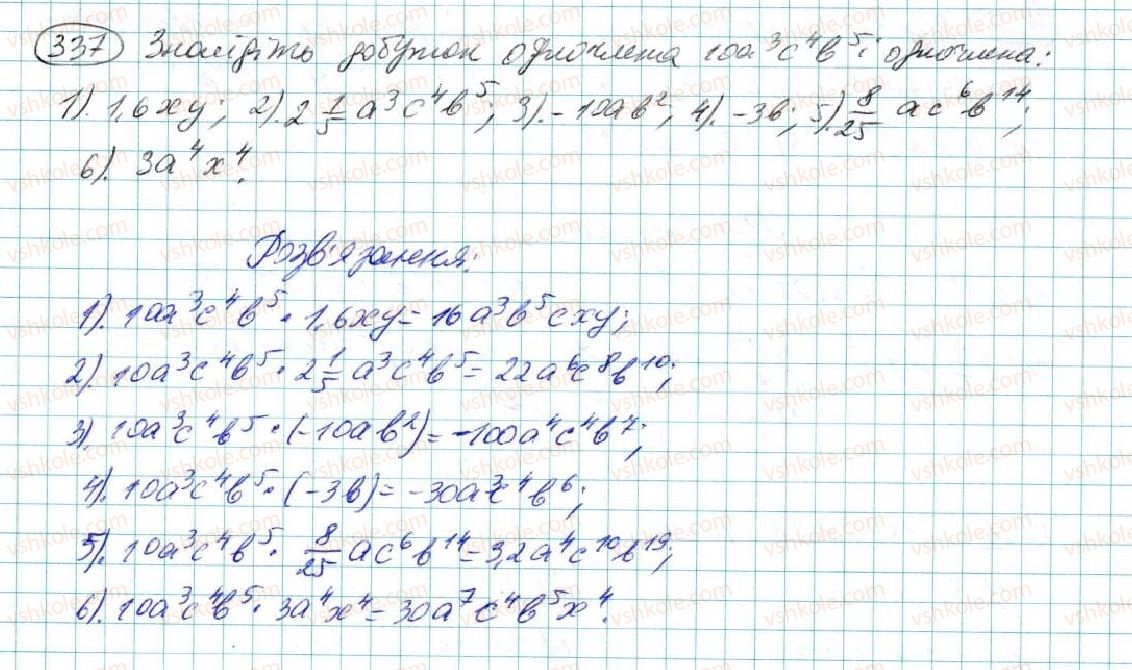 337 Знайдіть добуток одночлена 10a³c⁴b⁵ і одночлена:
1). 1,6xy; 2). 2 1/5 a³c⁴b⁵; 3). -10ab²; 4). -3b; 5). 8/25 ac⁶b¹⁴;
6). 3a⁴x⁴.
Розв'язання:
1). 10a³c⁴b⁵ · 1,6xy = 16a³b⁵cxy;
2). 10a³c⁴b⁵ · 2 1/5 a³c⁴b⁵ = 22a⁶c⁸b¹⁰;
3). 10a³c⁴b⁵ · (-10ab²) = -100a⁴c⁴b⁷;
4). 10a³c⁴b⁵ · (-3b) = -30a³c⁴b⁶;
5). 10a³c⁴b⁵ · 8/25 ac⁶b¹⁴ = 3,2a⁴c¹⁰b¹⁹;
6). 10a³c⁴b⁵ · 3a⁴x⁴ = 30a⁷c⁴b⁵x⁴.
vshkole.com